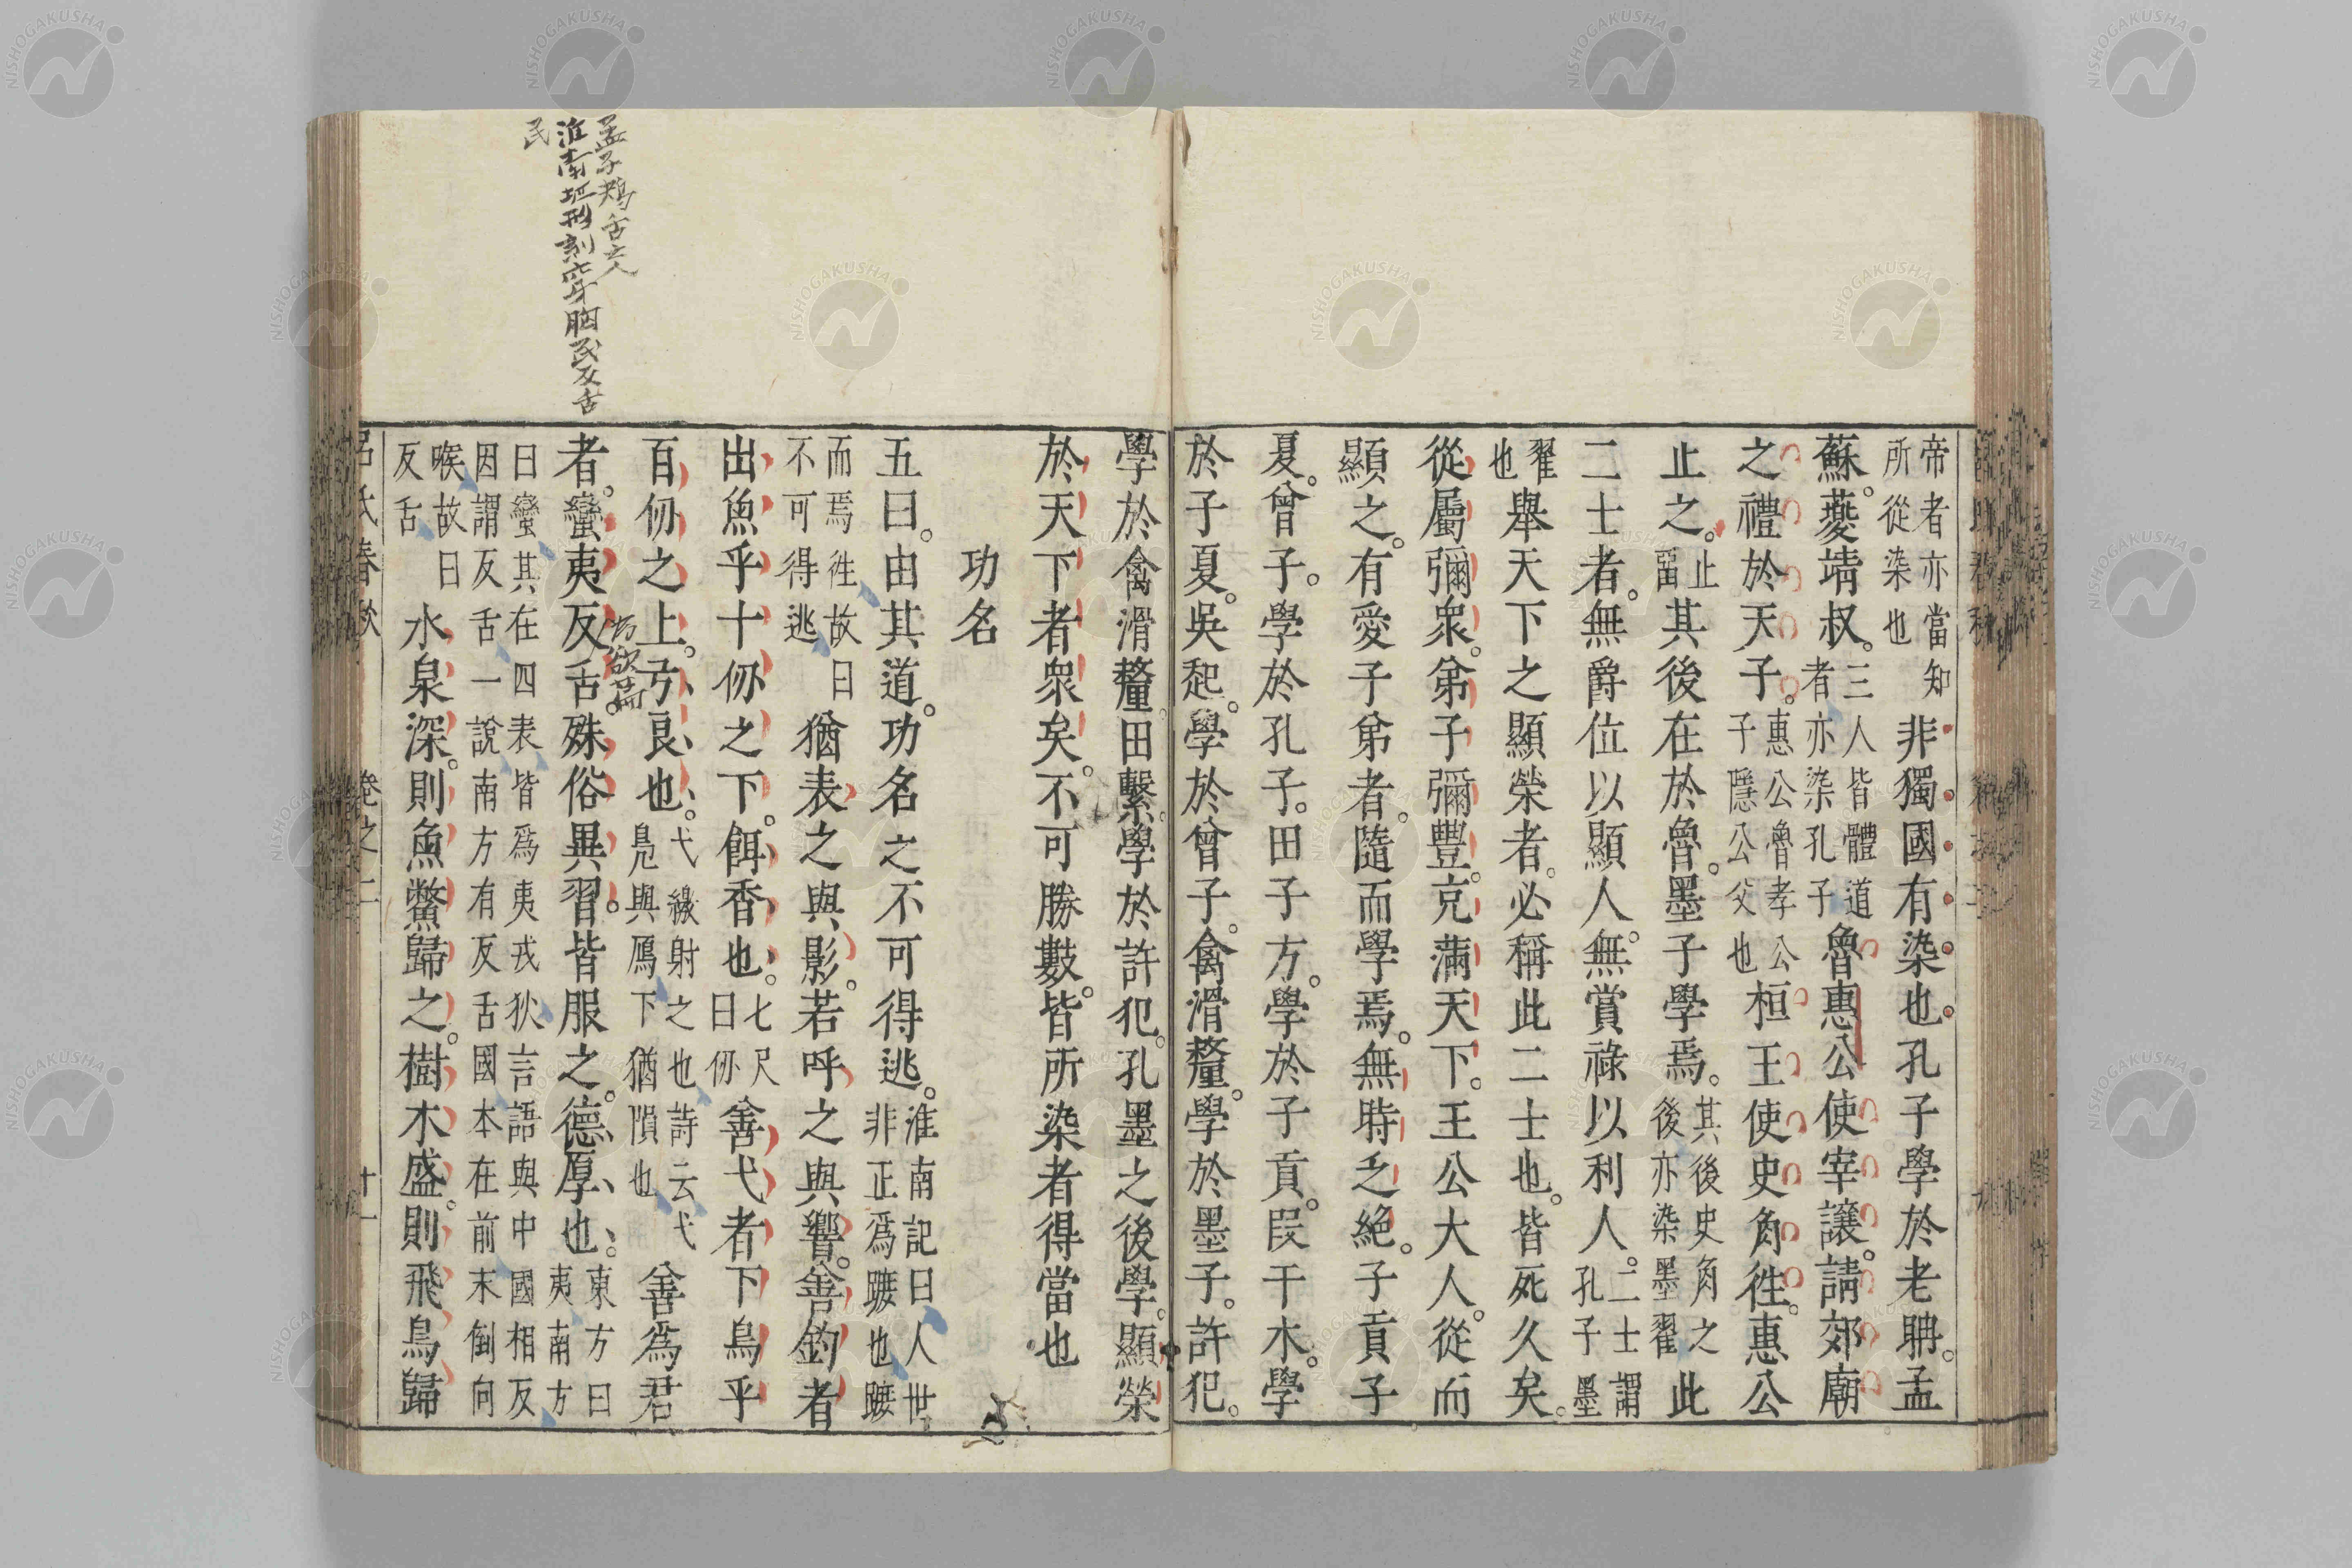 帝者亦當知所從染也非獨國有染也。孔子學於老聃。孟
蘇夔靖叔。三人皆體道者亦染孔子魯惠公使宰讓。請郊廟
之禮於天子。惠公魯孝公子隱公父也桓王使史角徃。惠公
止之。止畱其後在於魯。墨子學焉。其後史角之後亦染墨翟此
二士者。無爵位以顯人。無賞祿以利人。二士謂孔子墨
翟也舉天下之顯榮者。必稱此二士也。皆死久矣。
從屬彌衆。弟子彌豐。充滿天下。王公大人。從而
顯之。有愛子弟者。隨而學焉。無時乏絕。子貢子
夏。曾子。學於孔子。田子方。學於子貢。段干木。學
於子夏。吳起。學於曾子。禽滑釐。學於墨子。許犯。
學於禽滑釐。田繫。學於許犯。孔墨之後學。顯榮
於天下者衆矣。不可勝數。皆所染者得當也
功名
五曰。由其道。功名之不可得逃。淮南記曰人世非正爲蹠也蹠
而焉徃故曰不可得逃猶表之與影。若呼之與響。善釣者
出魚乎十仞之下。餌香也。七尺曰仞善弋者下鳥乎
百仞之上。弓良也。弋繳射之也詩云弋鳧與鴈下猶隕也善爲君
者。蠻夷反舌。殊俗異習。皆服之。德厚也。東方曰夷南方
曰蠻其在四表皆爲夷戎狄言語與中國相反因謂反舌一說南方有反舌國本在前末倒向
喉故曰反舌水泉深。則魚鱉歸之。樹木盛。則飛鳥歸
呂氏春秋 卷之二 十一
孟子鴃舌之人
淮南墬形
穿胸民反舌
民